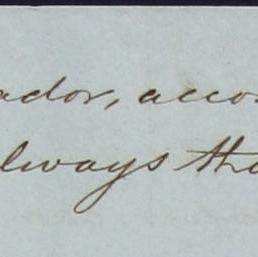 ador, acco
lways tha